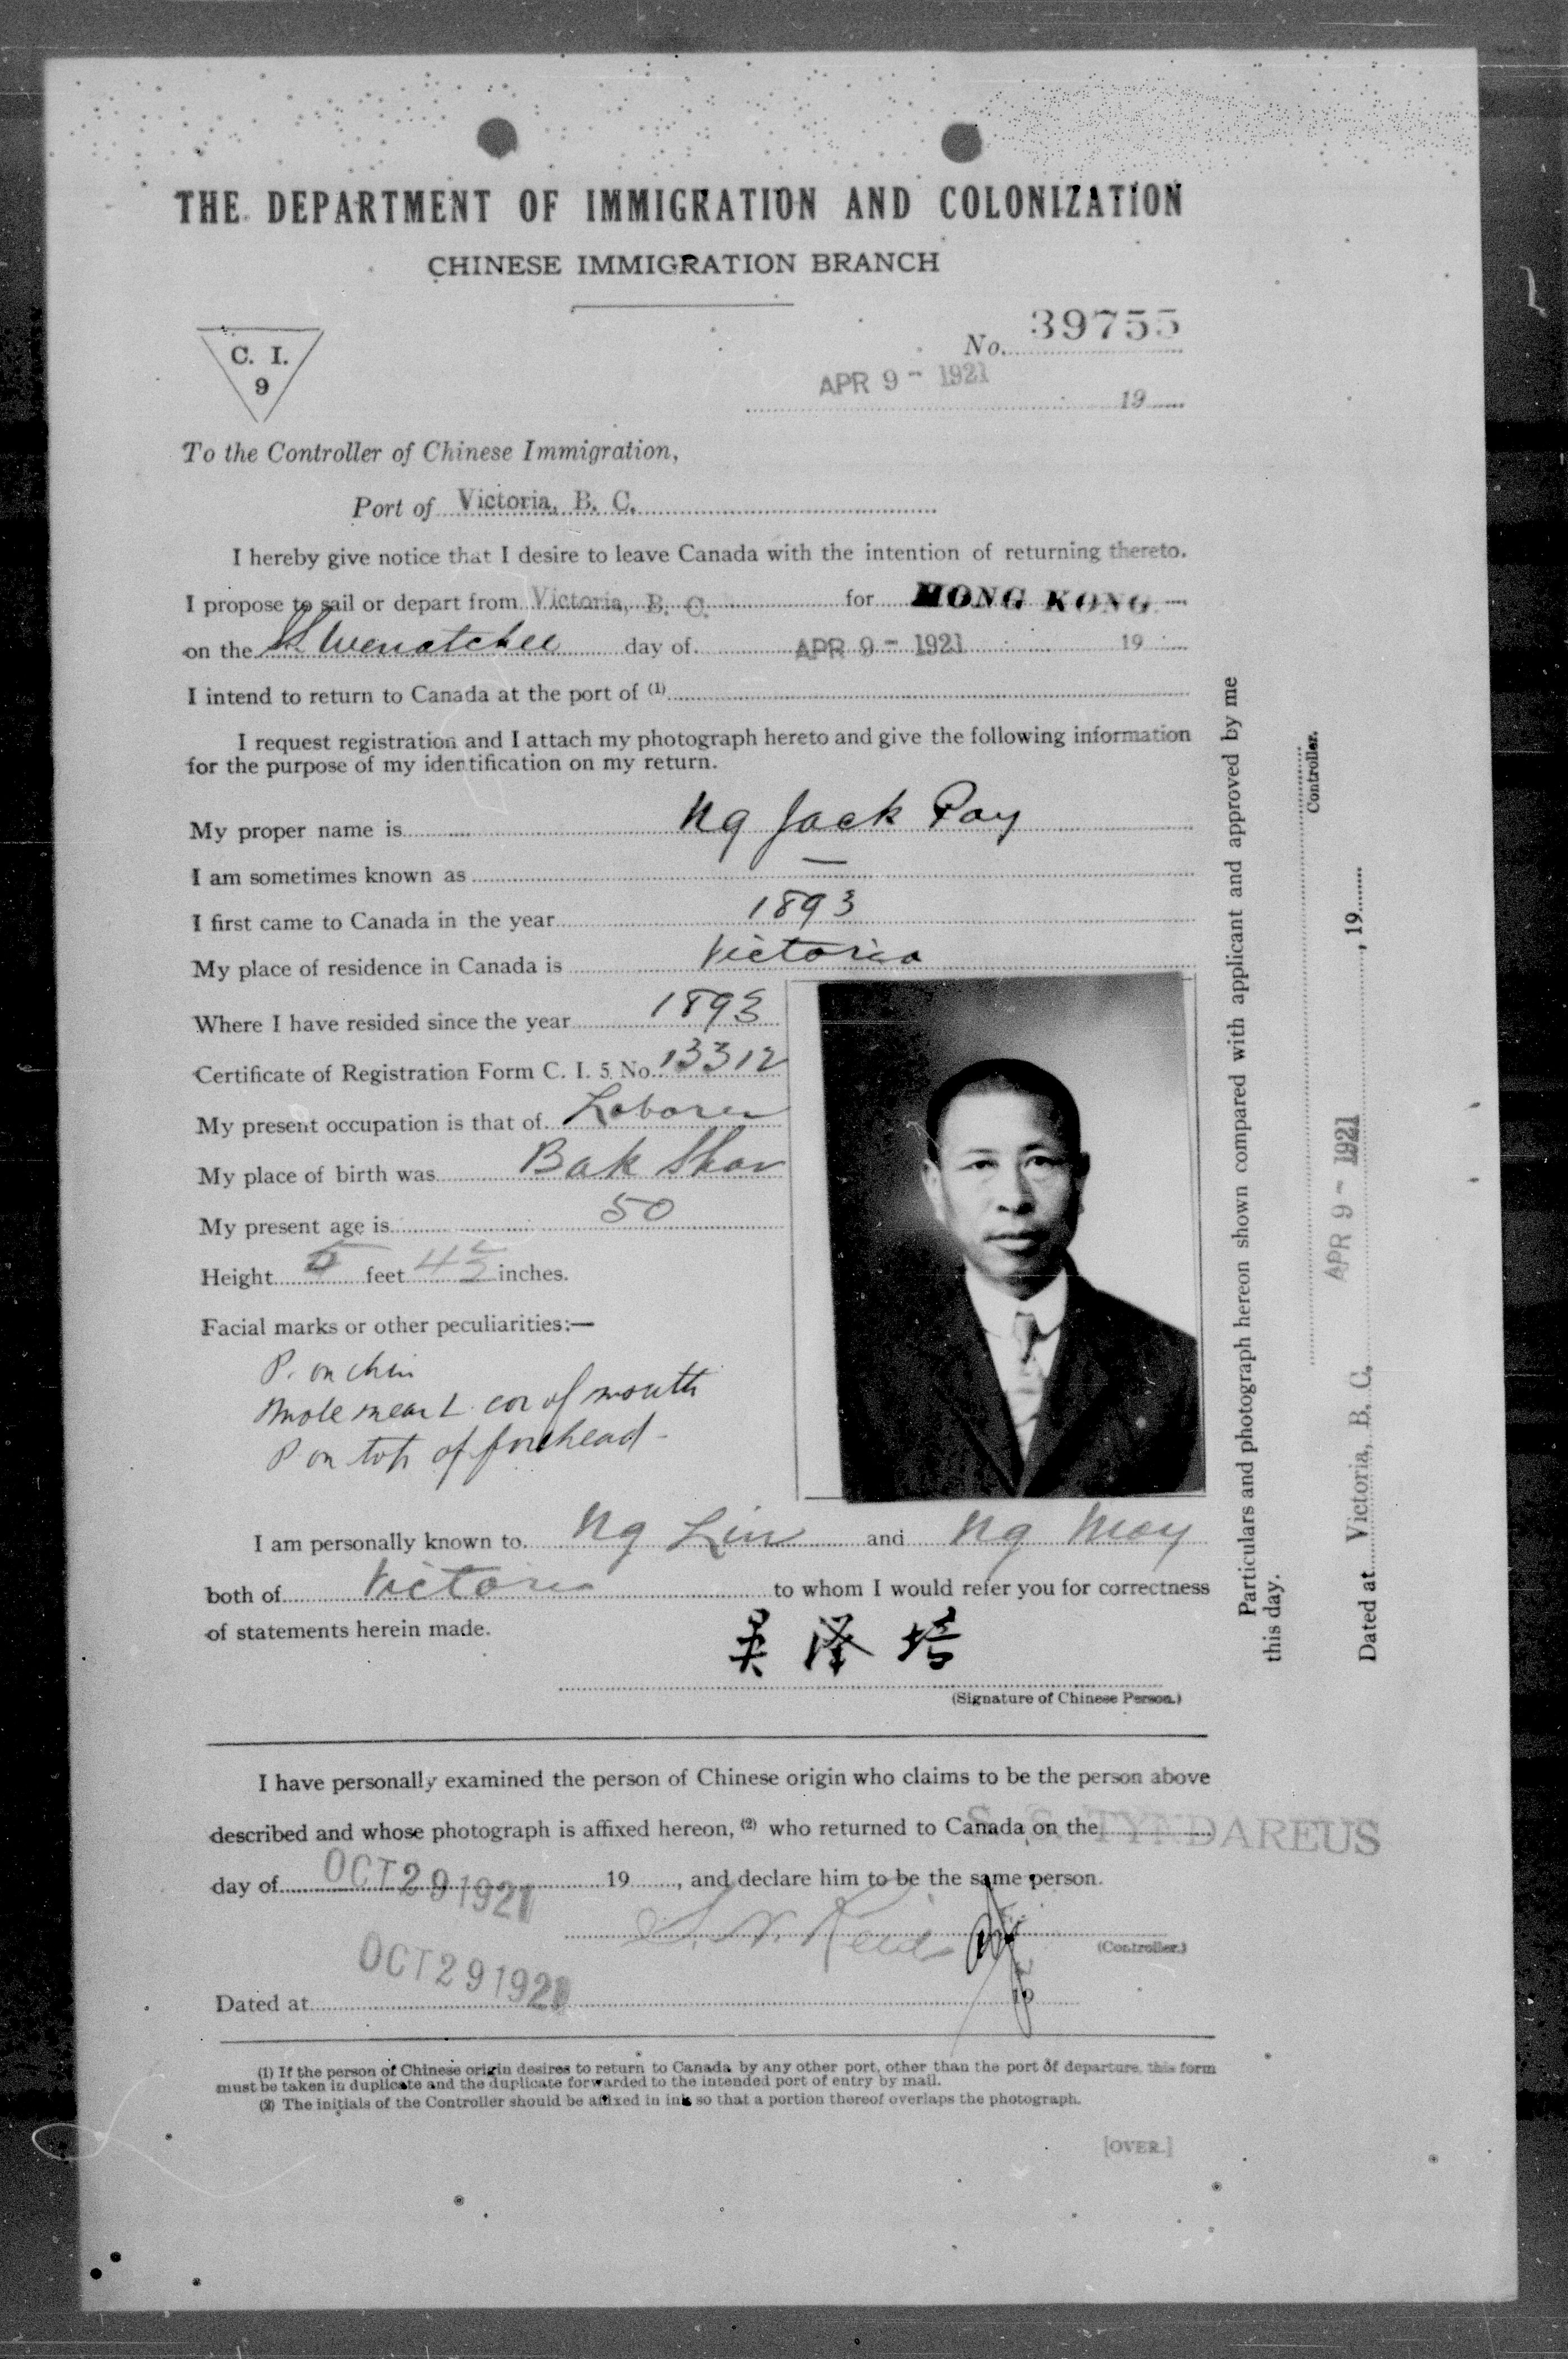 THE DEPARTMENT OF IMMIGRATION AND COLONIZATION
CHINESE IMMIGRATION BRANCH
C. I.
9
No. 39755
APR 9 - 1921 19
To the Controller of Chinese Immigration,
Port of Victoria, B. C.
I hereby give notice that I desire to leave Canada with the intention of returning thereto.
I propose to sail or depart from Victoria, B. C. for HONG KONG
on the Wenatchee day of APR 9 - 1921 19
I intend to return to Canada at the port of (1)
I request registration and I attach my photograph hereto and give the following information
for the purpose of my identification on my return.
My proper name is Ng Jack Poy
I am sometimes known as —
I first came to Canada in the year 1893
My place of residence in Canada is Victoria
Where I have resided since the year 1893
Certificate of Registration Form C. I. 5 No. 13312
My present occupation is that of Laborer
My place of birth was Bak Shar
My present age is 50
Height 5 feet 4½ inches.
Facial marks or other peculiarities:—
P. on chin
Mole near L cor of mouth
P on top of forehead -
I am personally known to Ng Lin and Ng Moy
both of Victoria to whom I would refer you for correctness
of statements herein made.
吴泽培
(Signature of Chinese Person.)
I have personally examined the person of Chinese origin who claims to be the person above
described and whose photograph is affixed hereon, (2) who returned to Canada on the S. S. TYNDAREUS
day of OCT 29 1921 19, and declare him to be the same person.
(Controller.)
OCT 29 1921
Dated at
(1) If the person of Chinese origin desires to return to Canada by any other port, other than the port of departure, this form
must be taken in duplicate and the duplicate forwarded to the intended port of entry by mail.
(2) The initials of the Controller should be affixed in ink so that a portion thereof overlaps the photograph.
[OVER.]
Particulars and photograph hereon shown compared with applicant and approved by me
this day.
Controller.
APR 9 - 1921
Dated at Victoria, B. C. , 19